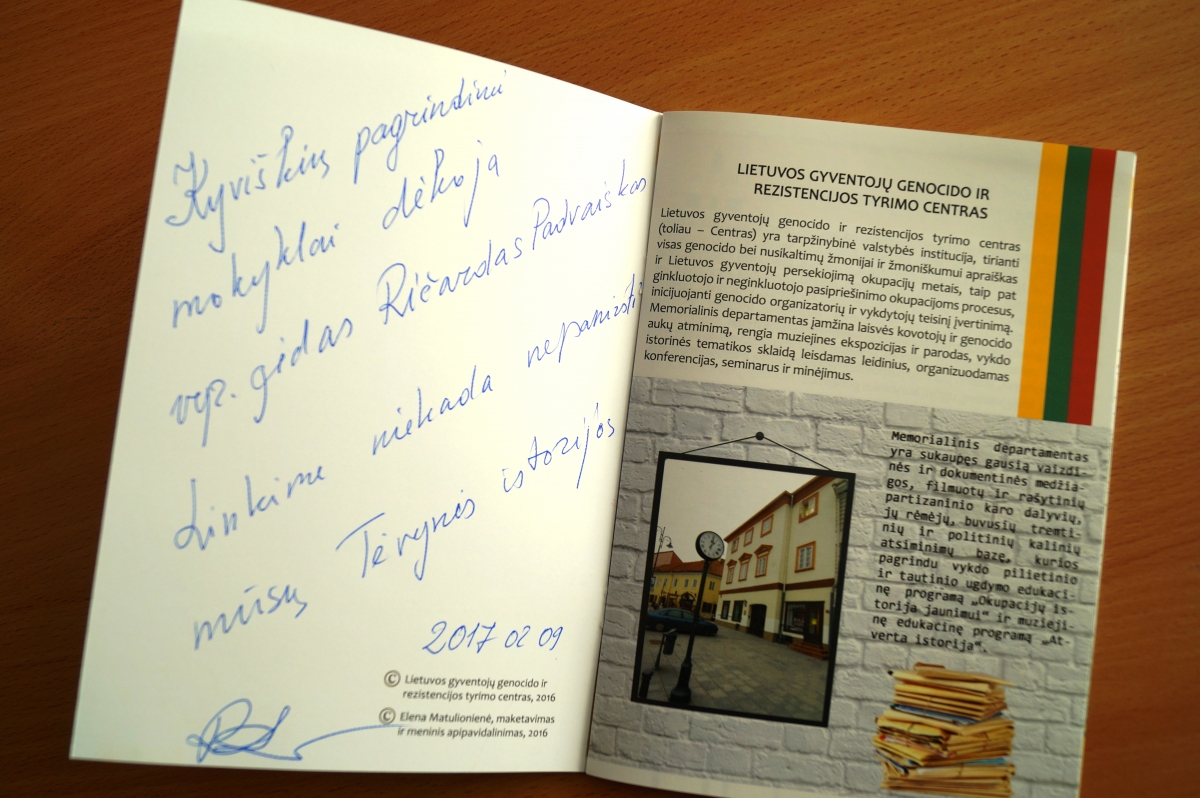 Kyviškių pagrindinei
mokyklai dėkoja
vyr. gidas Ričardas Padvaiskas
Linkime niekada nepamiršti
mūsų Tėvynės istorijos
2017 02 09
© Lietuvos gyventojų genocido ir
rezistencijos tyrimo centras, 2016
© Elena Matulionienė, maketavimas
ir meninis apipavidalinimas, 2016
LIETUVOS GYVENTOJŲ GENOCIDO IR
REZISTENCIJOS TYRIMO CENTRAS
Lietuvos gyventojų genocido ir rezistencijos tyrimo centras
(toliau – Centras) yra tarpžinybinė valstybės institucija, tirianti
visas genocido bei nusikaltimų žmonijai ir žmoniškumui apraiškas
ir Lietuvos gyventojų persekiojimą okupacijų metais, taip pat
ginkluotojo ir neginkluotojo pasipriešinimo okupacijoms procesus,
inicijuojanti genocido organizatorių ir vykdytojų teisinį įvertinimą.
Memorialinis departamentas įamžina laisvės kovotojų ir genocido
aukų atminimą, rengia muziejines ekspozicijas ir parodas, vykdo
istorinės tematikos sklaidą leisdamas leidinius, organizuodamas
konferencijas, seminarus ir minėjimus.
Memorialinis departamentas
yra sukaupęs gausią vaizdi-
nės ir dokumentinės medžia-
gos, filmuotų ir rašytinių
partizaninio karo dalyvių,
jų rėmėjų, buvusių tremti-
nių ir politinių kalinių
atsiminimų bazę, kurios
pagrindu vykdo pilietinio
ir tautinio ugdymo edukaci-
nę programą „Okupacijų is-
torija jaunimui“ ir muzieji-
nę edukacinę programą „At-
verta istorija“.